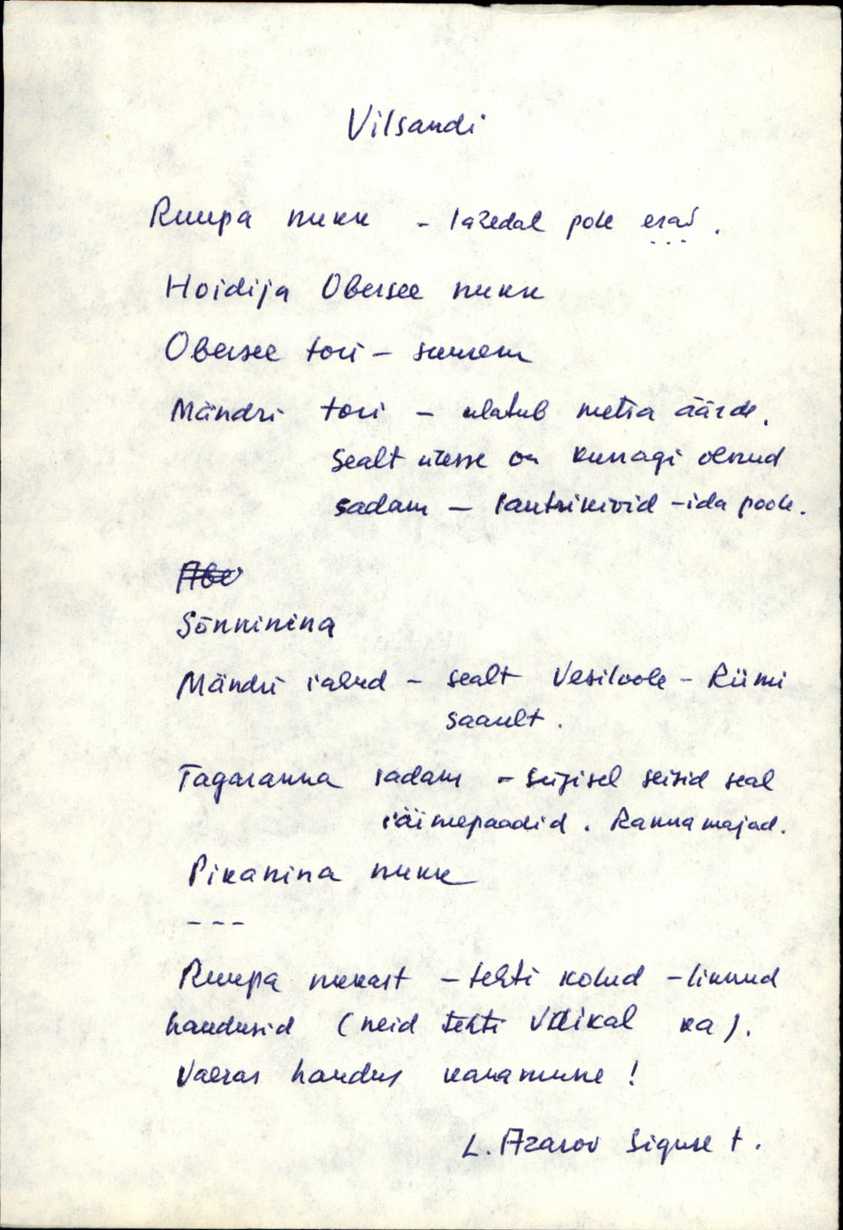 Vilsandi
Ruupa nukk - lagedal pole
Hoidija Obersee nukk
Obersee tori - suurem
Mändri tori - ulatub metsa äärde.
Sealt on kunagi olnud
sadam - lautrikivid - ida pool.
Sõnninina
Mändri rahud - sealt Vesiloole - Riimi
saarelt.
Tagaranna sadam - sügisel seisid seal
räimepaadid. Rannamajad.
Pikanina nukk
---
Ruupa nukast - tehti kolud - linnud
haudusid (neid tehti Väikal ka).
Vaeras haudus kanamune!
L. Azarov Siguse t.